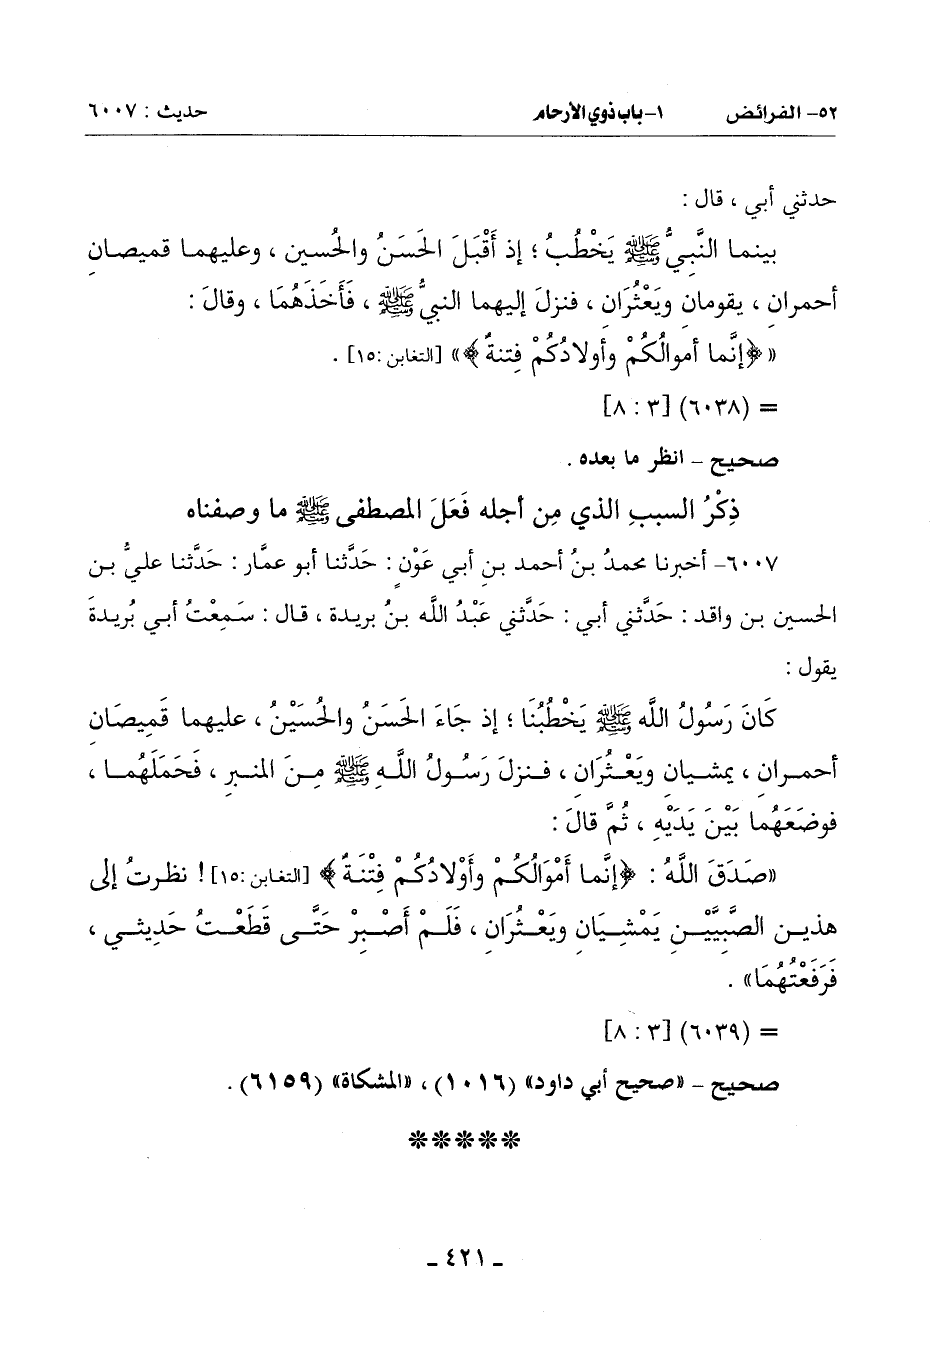 ٥٢- الفرائض ١- باب ذوي الأرحام حديث : ٦٠٠٧
حدثني أبي ، قال :
بينما النَّبيُّ ﷺ يَخْطُبُ ؛ إذ أَقْبَلَ الحَسَنُ والحُسين ، وعليهما قميصانِ
أحمران ، يقومانِ ويَعْثُرَانِ ، فنزلَ إليهما النبيُّ ﷺ ، فَأَخَذَهُمَا ، وقالَ :
«﴿إنَّما أموالُكُمْ وأولادُكُمْ فِتنةٌ﴾» [التغابن :١٥] .
= (٦٠٣٨) [٣ : ٨]
صحيح - انظر ما بعده .
ذِكْرُ السببِ الذي مِن أجله فَعَلَ المصطفى ﷺ ما وصفناه
٦٠٠٧- أخبرنا محمدُ بنُ أحمد بنِ أبي عَوْنٍ : حَدَّثنا أبو عمَّار : حَدَّثنا عليُّ بن
الحسين بن واقد : حَدَّثني أبي : حَدَّثني عَبْدُ الله بنُ بريدة ، قال : سَمِعْتُ أبي بُريدةَ
يقول :
كَانَ رَسُولُ الله ﷺ يَخْطُبُنَا ؛ إذ جَاءَ الحَسَنُ والحُسَيْنُ ، عليهما قَمِيصَانِ
أحمرانِ ، يمشيانِ ويَعْثُرَانِ ، فنزلَ رَسُولُ اللَّهِ ﷺ مِنَ المنبرِ ، فَحَمَلَهُما ،
فوضَعَهُما بَيْنَ يَدَيْهِ ، ثُمَّ قالَ :
«صَدَقَ اللَّهُ : ﴿إنَّما أَمْوَالُكُمْ وأَوْلادُكُمْ فِتْنَةٌ﴾ [التغابن :١٥] ! نظرتُ إلى
هذينِ الصَّبِيَّيْنِ يَمْشِيَانِ ويَعْثُرَانِ ، فَلَمْ أَصْبِرْ حَتَّى قَطَعْتُ حَدِيثي ،
فَرَفَعْتُهُمَا» .
= (٦٠٣٩) [٣ : ٨]
صحيح - «صحيح أبي داود» (١٠١٦) ، «المشكاة» (٦١٥٩) .
*****
- ٤٢١ -